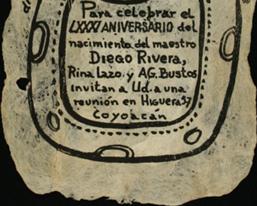 Para celebrar el
LXXXI ANIVERSARIO del
nacimiento del maestro
DIEGO RIVERA,
Rina Lazo y AG. Bustos
invitan a Ud. a una
reunión en HIGUERA 57
Coyoacán